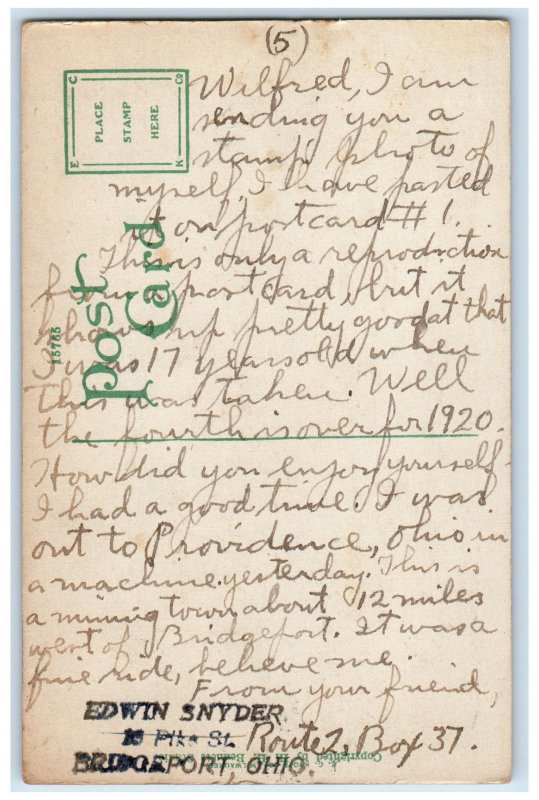 (5)
Wilfred, I am
sending you a
"stamp" photo of
myself, I have pasted
it on postcard #1.
This is only a reproduction
from a postcard, but it
shows up pretty good at that
I was 17 years old when
this was taken. Well
the fourth is over for 1920.
How did you enjoy yourself.
I had a good time. I was
out to Providence, Ohio in
a machine yesterday. This is
a mining town about 12 miles
west of Bridgeport. It was a
fine ride, believe me.
From your friend,
EDWIN SNYDER
Route 2, Box 37.
Pike St.
BRIDGEPORT, OHIO.
PLACE
STAMP
HERE
E C CO K
Post
Card
15765
Copyrighted by